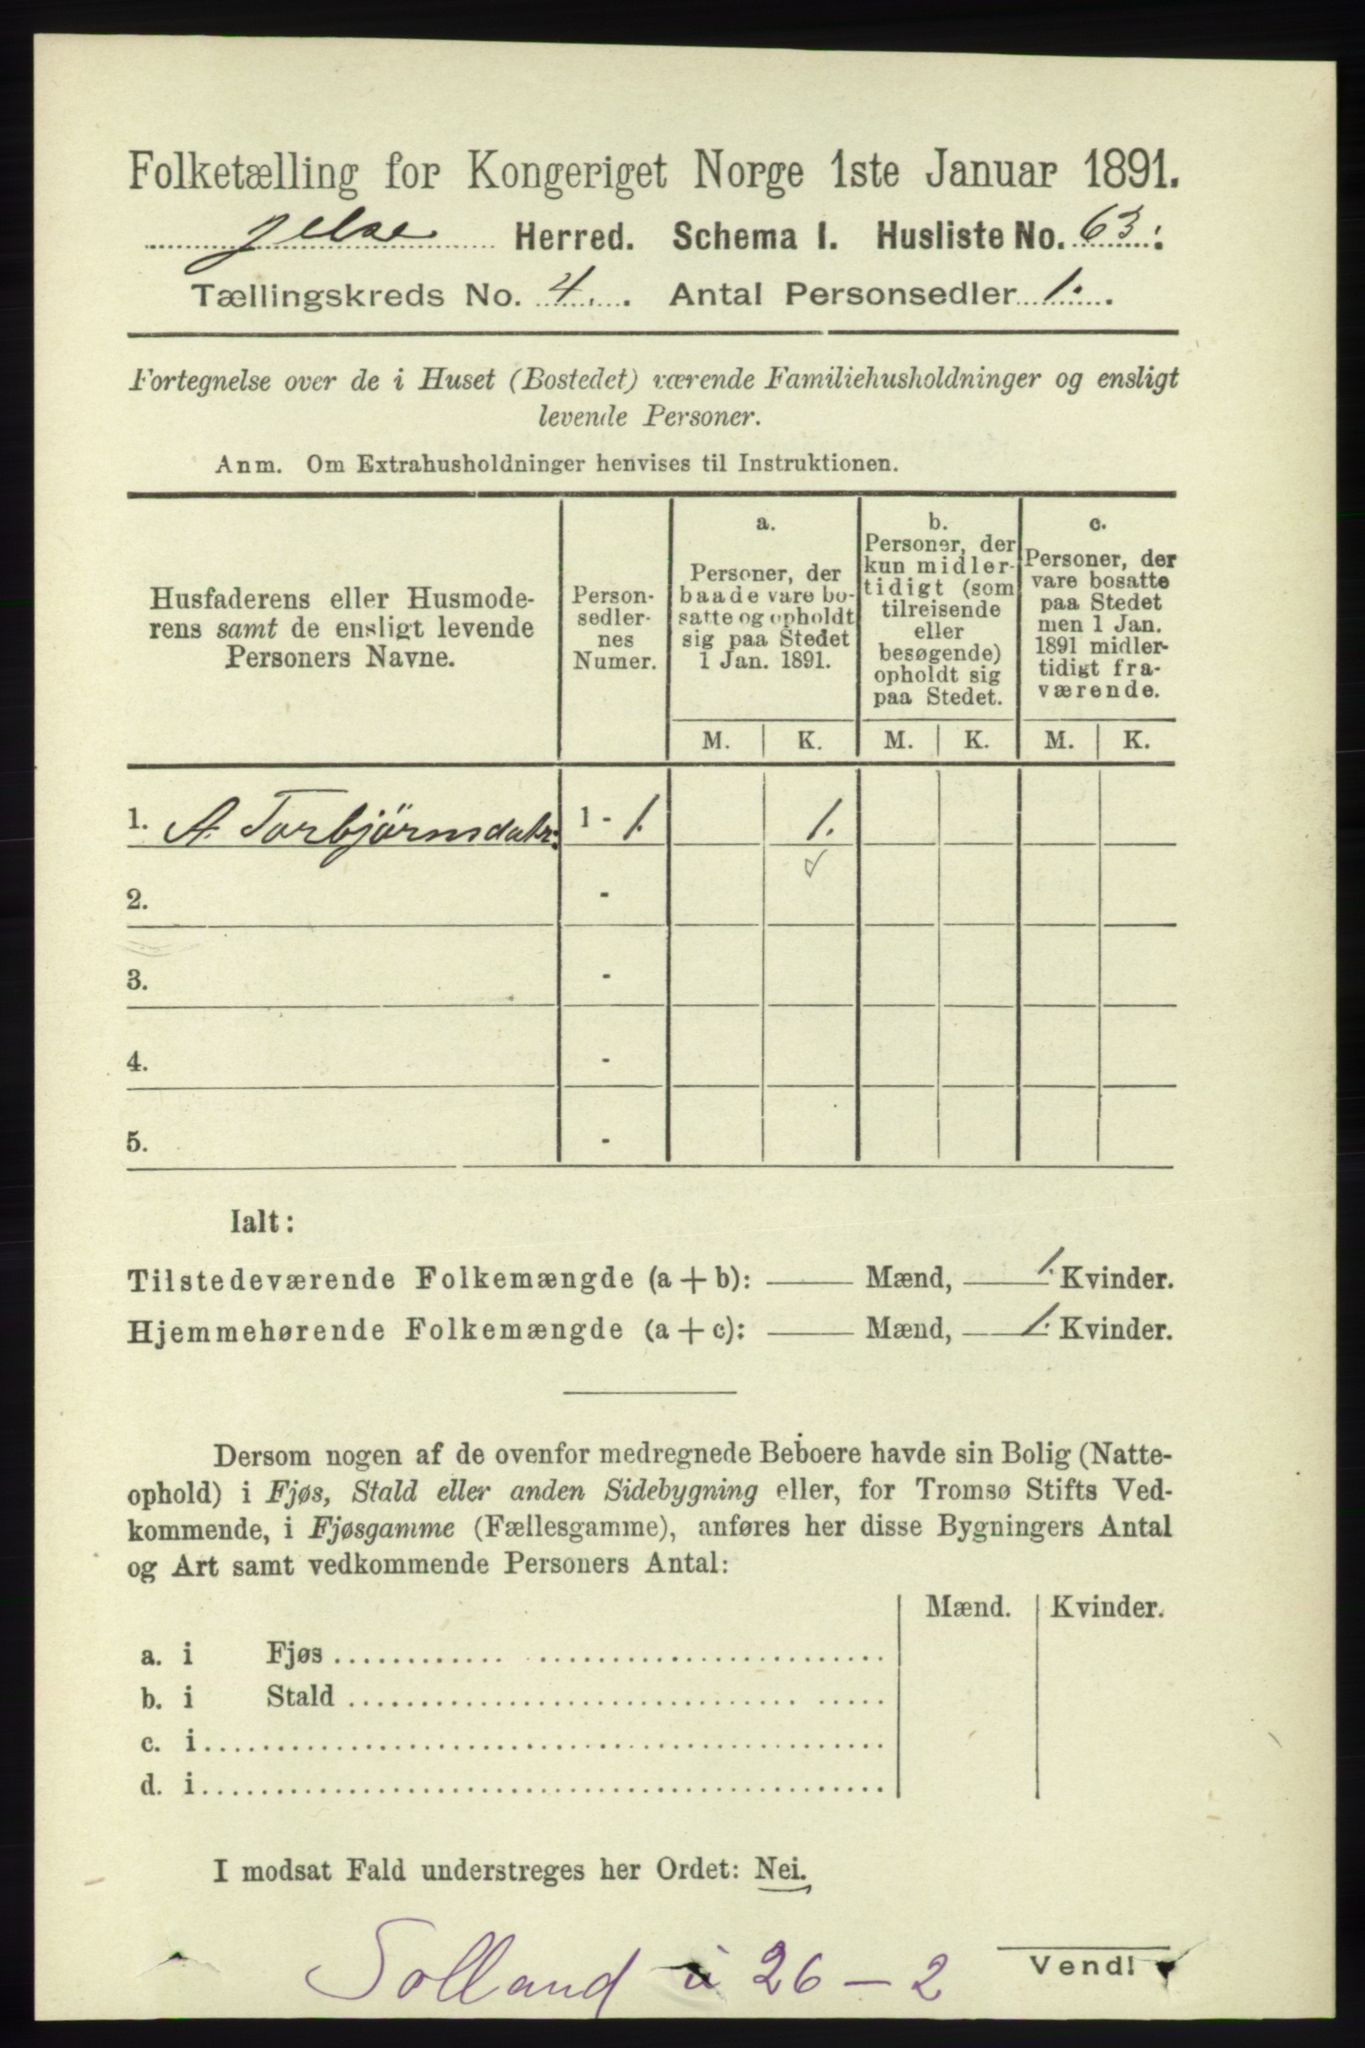 Folketælling for Kongeriget Norge 1ste Januar 1891.
Jelse Herred. Schema I. Husliste No. 63.
Tællingskreds No. 4. Antal Personsedler 1.
Fortegnelse over de i Huset (Bostedet) værende Familiehusholdninger og ensligt
levende Personer.
Anm. Om Extrahusholdninger henvises til Instruktionen.
Husfaderens eller Husmode-
rens samt de ensligt levende
Personers Navne.
Person-
sedler-
nes
Numer.
a.
Personer, der
baade vare bo-
satte og opholdt
sig paa Stedet
1 Jan. 1891.
b.
Personer, der
kun midler-
tidigt (som
tilreisende
eller
besøgende)
opholdt sig
paa Stedet.
c.
Personer, der
vare bosatte
paa Stedet
men 1 Jan.
1891 midler-
tidigt fra-
værende.
M. K. M. K. M. K.
1. A. Torbjörnsdatr. 1 - 1. 1.
2. -
3. -
4. -
5. -
Ialt:
Tilstedeværende Folkemængde (a + b): Mænd, 1. Kvinder.
Hjemmehørende Folkemængde (a + c): Mænd, 1. Kvinder.
Dersom nogen af de ovenfor medregnede Beboere havde sin Bolig (Natte-
ophold) i Fjøs, Stald eller anden Sidebygning eller, for Tromsø Stifts Ved-
kommende, i Fjøsgamme (Fællesgamme), anføres her disse Bygningers Antal
og Art samt vedkommende Personers Antal:
Mænd. Kvinder.
a. i Fjøs
b. i Stald
c. i
d. i
I modsat Fald understreges her Ordet: Nei.
Solland i 26 - 2
Vend!